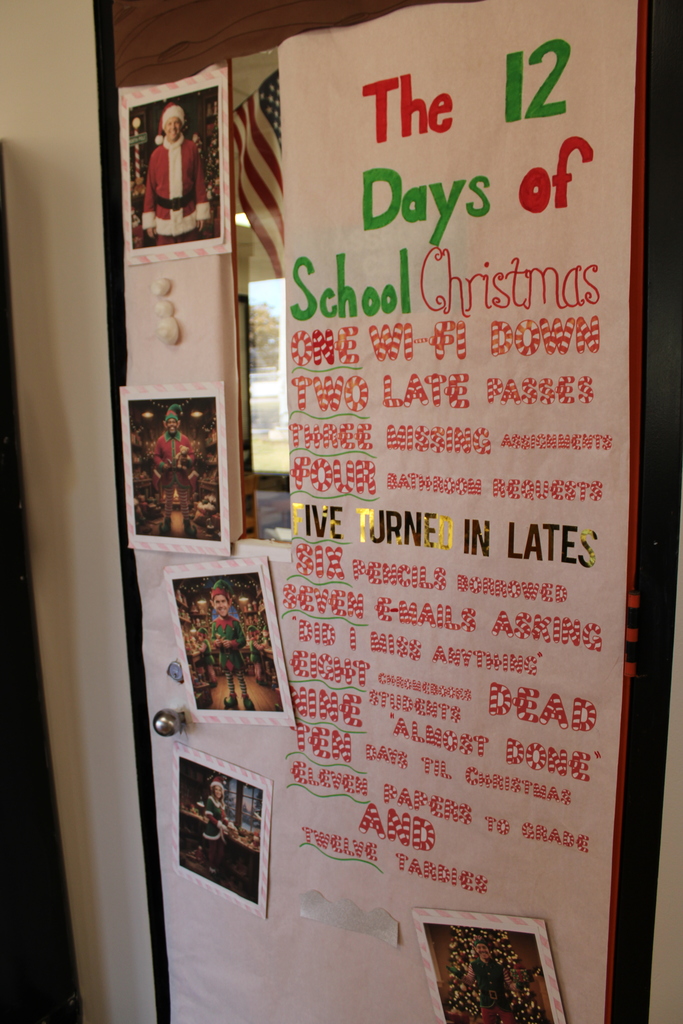 The 12
Days of
School Christmas
ONE WI-FI DOWN
TWO LATE PASSES
THREE MISSING ASSIGNMENTS
FOUR BATHROOM REQUESTS
FIVE TURNED IN LATES
SIX PENCILS BORROWED
SEVEN E-MAILS ASKING
"DID I MISS ANYTHING"
EIGHT CHROMEBOOKS DEAD
NINE STUDENTS "ALMOST DONE"
TEN DAYS TIL CHRISTMAS
ELEVEN PAPERS TO GRADE
AND
TWELVE TARDIES